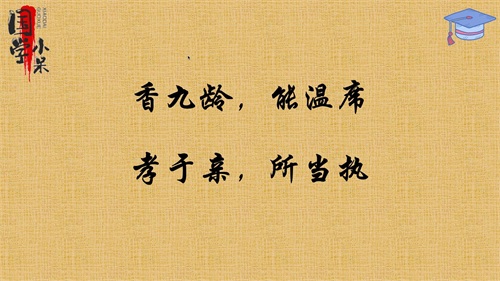 国学
小米
香九龄，能温席
孝于亲，所当执